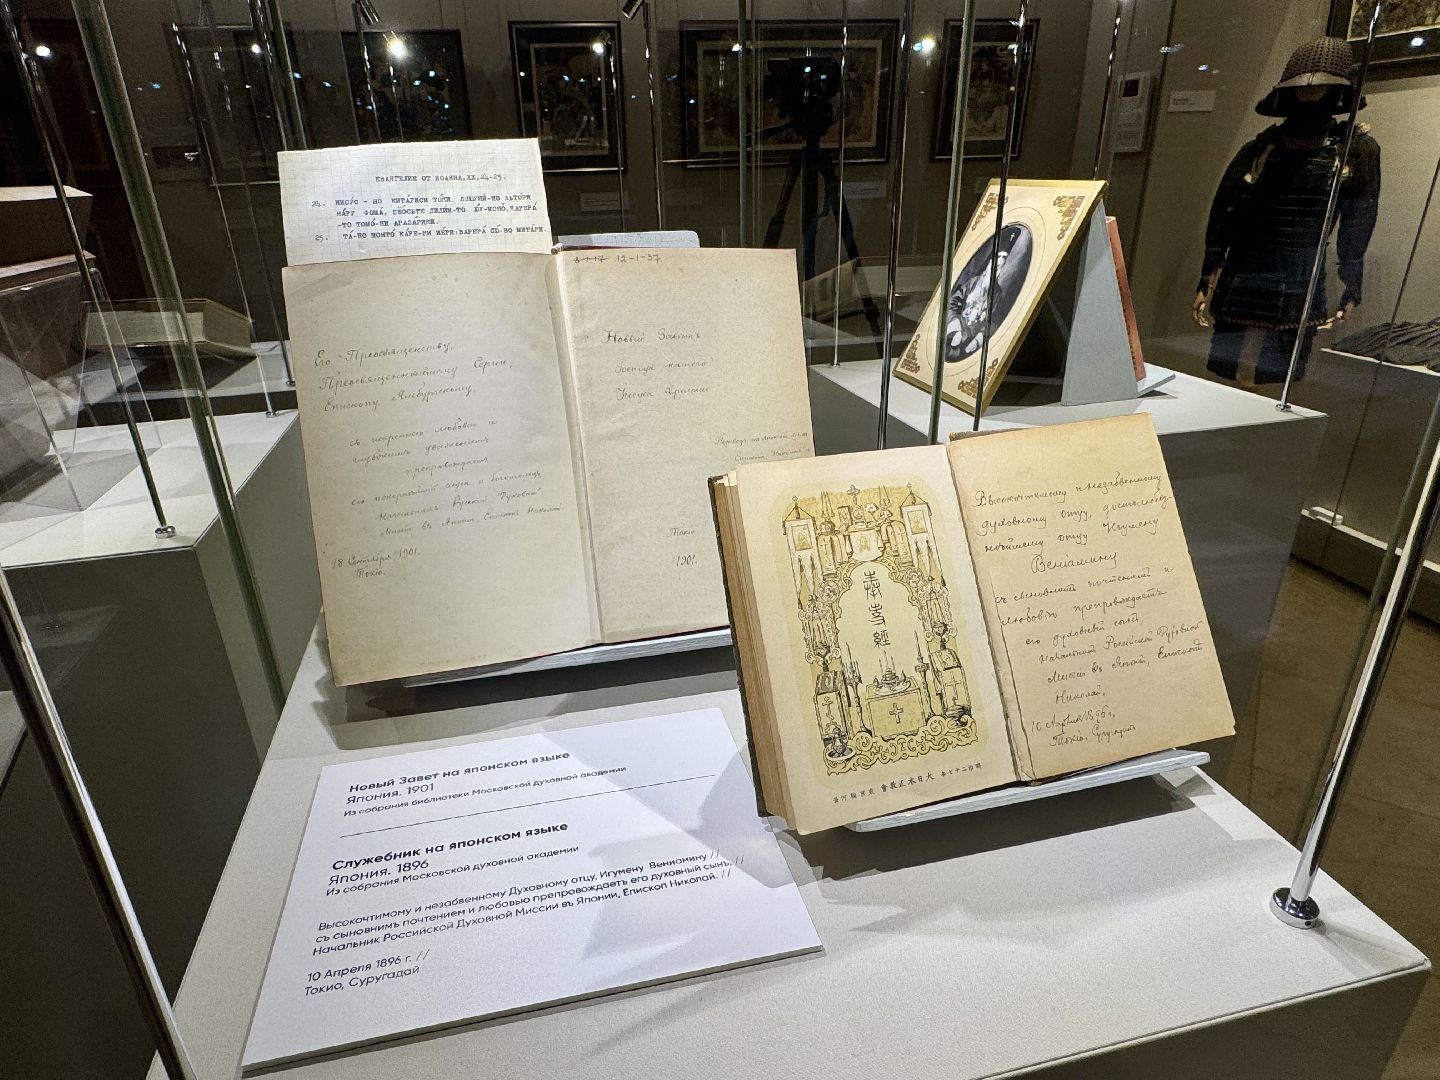 ЕВАНГЕЛИЕ ОТ ИОАННА, XX, 24-25.
24. ИИСУС - НО
НАРУ ФОМА,
-ТО ТОМО-НИ АРАЗАРИКИ.
25. ТА-НО МОНТО КАРЕ-НИ
12-1-37
Его Преосвященству,
Преосвященнѣйшему Сергію,
Епископу Ямбургскому,
съ искреннею любовію и
глубокимъ уваженіемъ
препровождаетъ
его покорнѣйшій слуга и богомолецъ
Начальникъ Русской Духовной
Миссіи въ Японіи, Епископъ Николай.
18 Сентября 1901.
Токіо.
Новый Завѣтъ
Господа нашего
Іисуса Христа
Токіо
1901.
奉事經
明治二十七年 大日本正教會 東京駿河臺
Высокочтимому и незабвенному
духовному отцу, достолюбез-
нѣйшему отцу Игумену
Веніамину
съ сыновнимъ почтеніемъ и
любовью препровождаетъ
его духовный сынъ,
Начальникъ Россійской Духовной
Миссіи въ Японіи, Епископъ
Николай.
10 Апрѣля 1896 г.
Токіо, Суругадай
Новый Завет на японском языке
Япония. 1901
Из собрания библиотеки Московской духовной академии
Служебник на японском языке
Япония. 1896
Из собрания Московской духовной академии
Высокочтимому и незабвенному Духовному отцу, Игумену Вениамину //
съ сыновнимъ почтением и любовью препровождаетъ его духовный сынъ, //
Начальник Российской Духовной Миссии въ Японии, Епископ Николай. //
10 Апреля 1896 г. //
Токио, Суругадай